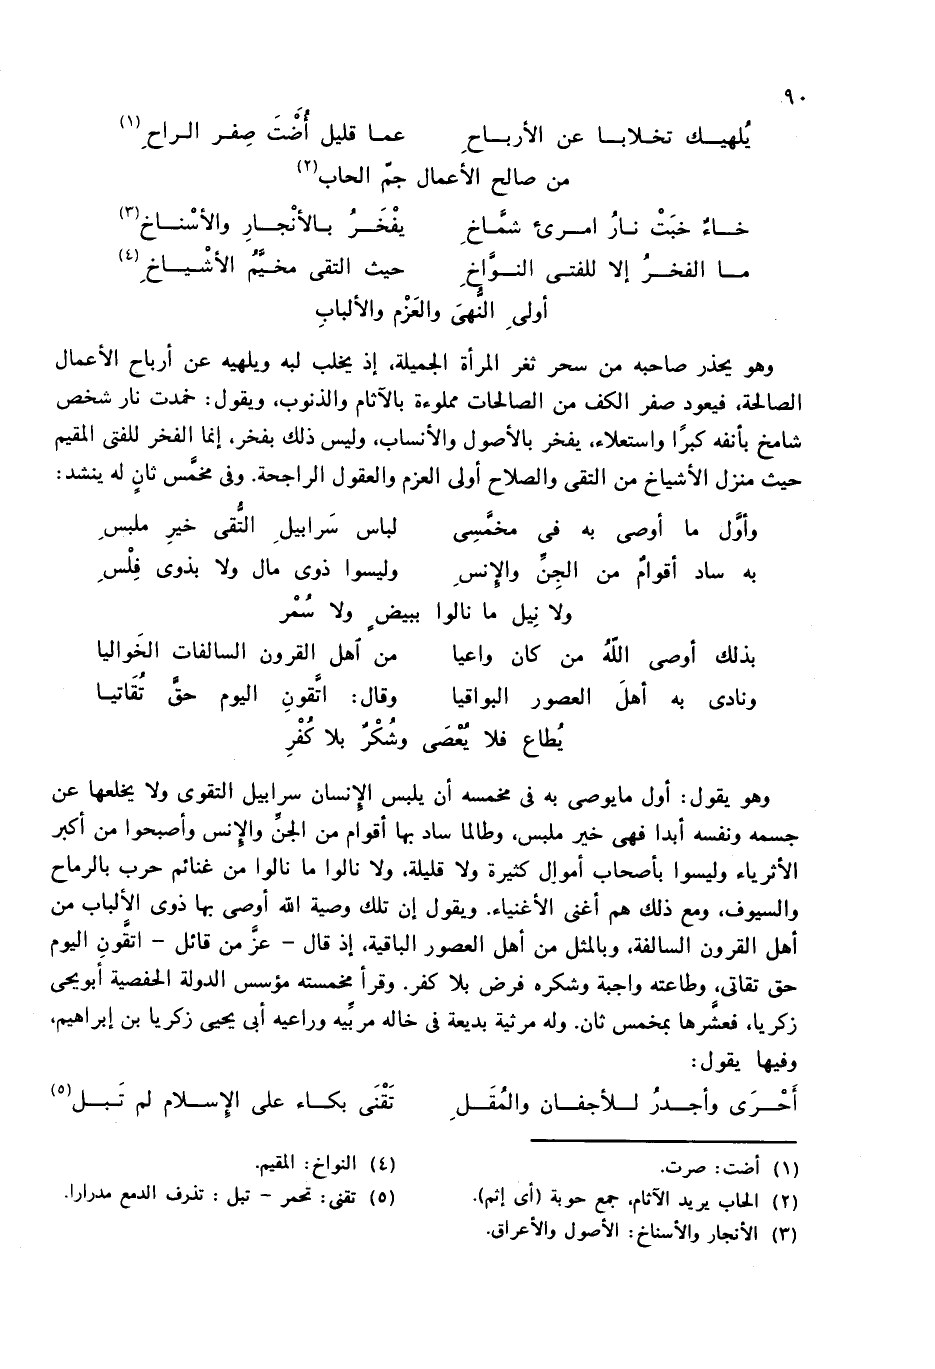 ٩٠
يُلهيـك تخـلابـا عن الأربـاحِ عمـا قليل أُضْتَ صِفـر الـراحِ(١)
من صالح الأعمال جمّ الحاب(٢)
خـاءٌ خبَتْ نـارُ امـرئ شمَّـاخِ يفْخَـرُ بـالأنْجـارِ والأسْنـاخِ(٣)
مـا الفخـرُ إلا للفتـى النـوَّاخِ حيث التقى مخيَّمُ الأشْيـاخِ(٤)
أولى النُّهىَ والعَزْم والألبابِ
وهو يحذر صاحبه من سحر ثغر المرأة الجميلة، إذ يخلب لبه ويلهيه عن أرباح الأعمال
الصالحة، فيعود صفر الكف من الصالحات مملوءة بالآثام والذنوب، ويقول: خمدت نار شخص
شامخ بأنفه كبرًا واستعلاء، يفخر بالأصول والأنساب، وليس ذلك بفخر، إنما الفخر للفتى المقيم
حيث منزل الأشياخ من التقى والصلاح أولى العزم والعقول الراجحة. وفى مخمَّس ثانٍ له ينشد:
وأوَّل ما أوصى به فى مخمَّسِى لباس سَرابيلِ التُّقى خيرِ ملبسِ
به ساد أقوامٌ من الجنِّ والإنسِ وليسوا ذوى مال ولا بذوى فِلْسِ
ولا نِيل ما نالوا ببيضٍ ولا سُمْر
بذلك أوصى اللّهُ من كان واعيا من اهل القرون السالفات الخَواليا
ونادى به أهلَ العصور البواقيا وقال: اتَّقونِ اليوم حقَّ تُقَاتيـا
يُطاع فلا يُعْصَى وشُكْرٌ بلا كُفْرِ
وهو يقول: أول مايوصى به فى مخمسه أن يلبس الإنسان سرابيل التقوى ولا يخلعها عن
جسمه ونفسه أبدا فهى خير ملبس، وطالما ساد بها أقوام من الجنِّ والإنس وأصبحوا من أكبر
الأثرياء وليسوا بأصحاب أموال كثيرة ولا قليلة، ولا نالوا ما نالوا من غنائم حرب بالرماح
والسيوف، ومع ذلك هم أغنى الأغنياء. ويقول إن تلك وصية الله أوصى بها ذوى الألباب من
أهل القرون السالفة، وبالمثل من أهل العصور الباقية، إذ قال – عزَّ من قائل – اتقَّونِ اليوم
حق تقاتى، وطاعته واجبة وشكره فرض بلا كفر. وقرأ مخمسته مؤسس الدولة الحفصية أبويحيى
زكريا، فعشَّرها بمخمس ثان. وله مرثية بديعة فى خاله مربِّيه وراعيه أبى يحيى زكريا بن إبراهيم،
وفيها يقول:
أَحْـرَى وأجـدرُ لـلأجفـان والمُقَـلِ تَقْنَى بكـاء على الإسـلام لم تَبـل(٥)
(١) أضت: صرت. (٤) النواخ: المقيم.
(٢) الحاب يريد الآثام، جمع حوبة (أى إثم). (٥) تقنى: تحمر – تبل: تذرف الدمع مدرارا.
(٣) الأنجار والأسناخ: الأصول والأعراق.